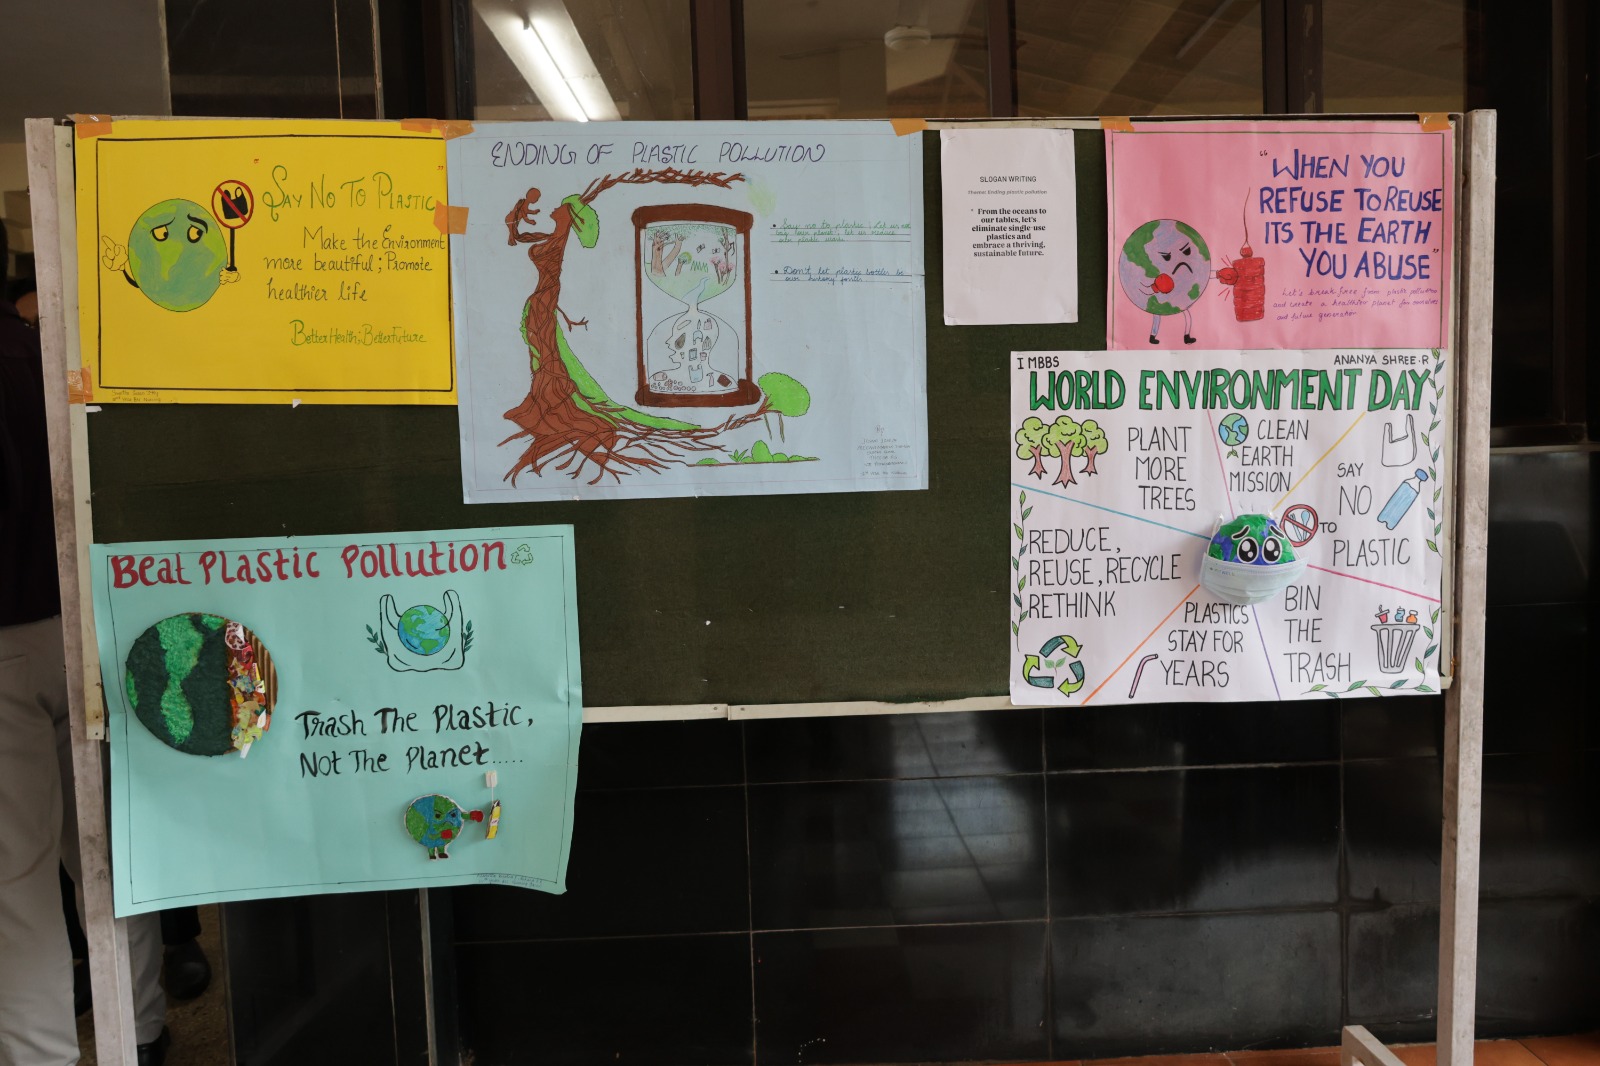 " SAY NO TO PLASTIC "
Make the Environment
more beautiful; Promote
healthier life
Better Health; Better Future
ENDING OF PLASTIC POLLUTION
Say no to plastic! Let us not
Don't let plastic bottles be
SLOGAN WRITING
Theme: Ending plastic pollution
" From the oceans to
our tables, let's
eliminate single-use
plastics and
embrace a thriving,
sustainable future.
"WHEN YOU
REFUSE TO REUSE
ITS THE EARTH
YOU ABUSE"
Let's break free from plastic pollution
and create a healthier planet for ourselves
and future generation
I MBBS
ANANYA SHREE.R
WORLD ENVIRONMENT DAY
PLANT
MORE
TREES
CLEAN
EARTH
MISSION
SAY
NO
TO
PLASTIC
REDUCE,
REUSE, RECYCLE
RETHINK
PLASTICS
STAY FOR
YEARS
BIN
THE
TRASH
Beat Plastic Pollution
Trash The Plastic,
Not The Planet.....